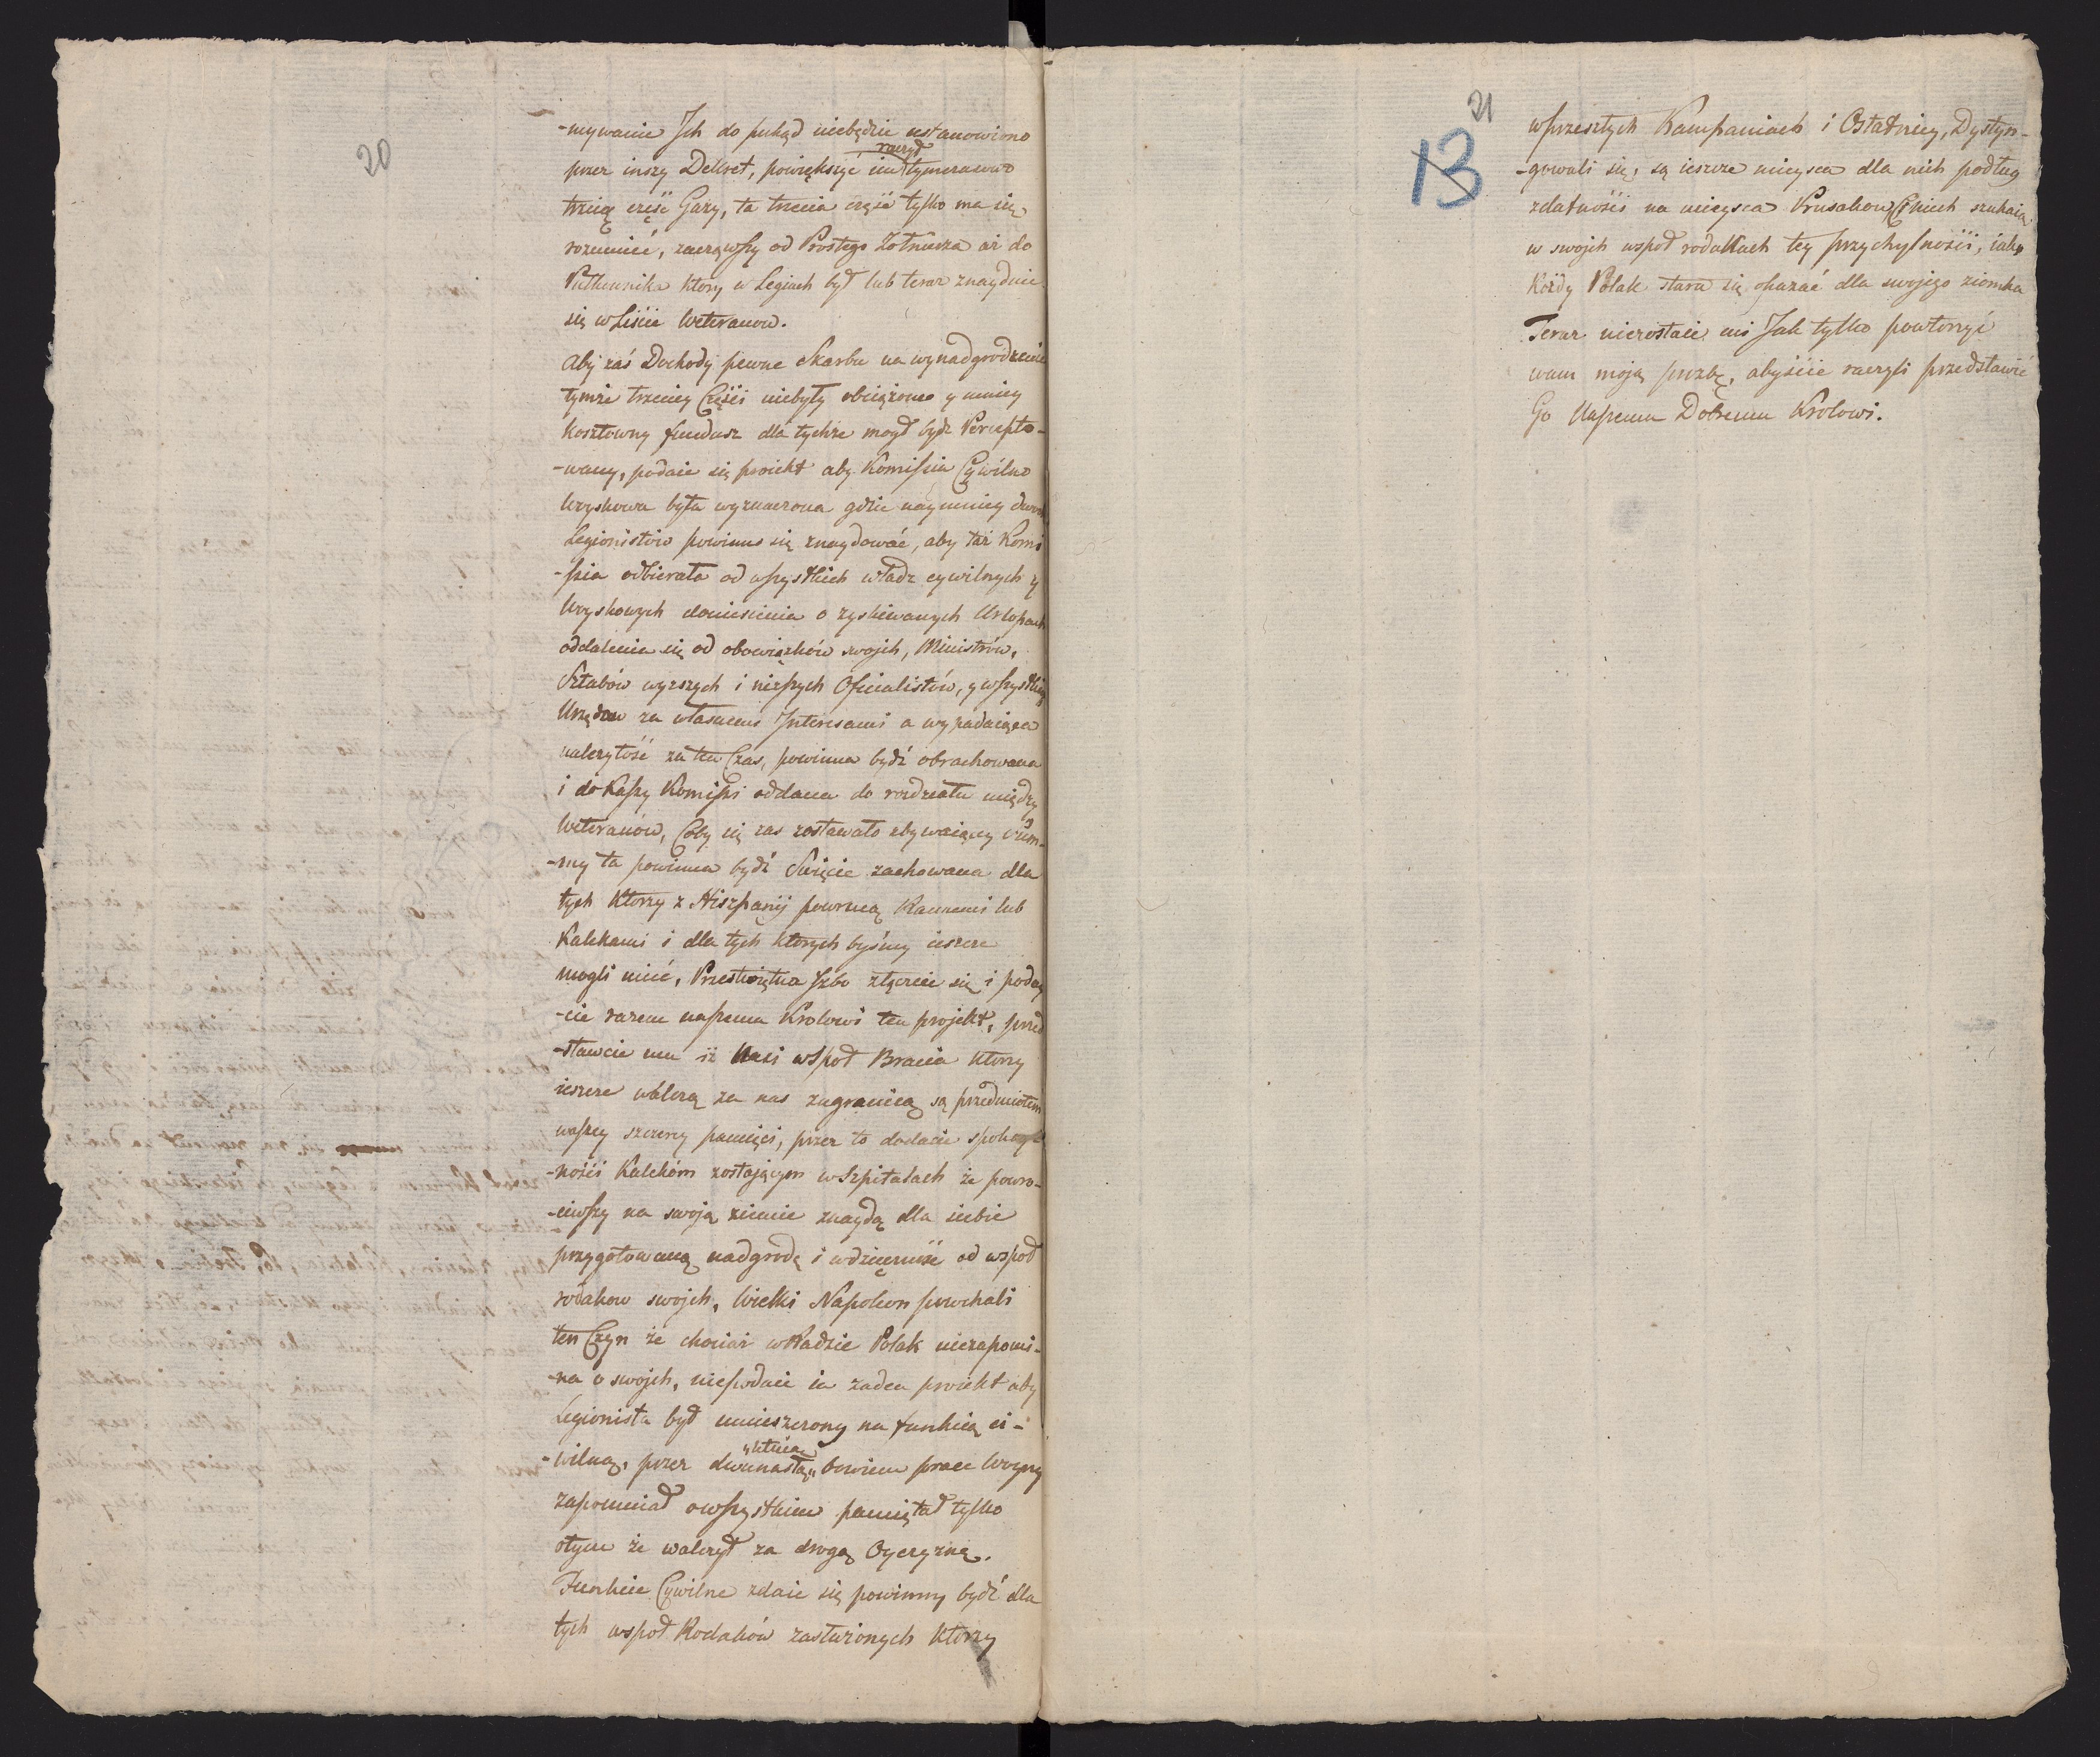 20
-mywanie Ich do pukąd niebędzie ustanowiono
raczył
przez inszy Dekret, powiększyć im tymczasowo
trzcią część Gaży, ta trzecia część tylko ma się
rozumieć, zacząwszy od Prostego Żołnierza aż do
Pułkownika ktory w Legiach był lub teraz znayduie
się w Liście Weteranow.
Aby zaś Dochody pewne Skarbu na wynadgrodzenie
tymże trzeciey Części niebyły obciążone y mniey
kosztowny fundusz dla tychże mogł bydz Percepto-
-wany, podaie się proiekt aby Komissia Cywilno
Woyskowa była wyznaczona gdzie naymniey dwoch
Legionistów powinno się znaydować, aby taż Komi
-ssia odbierała od wszystkich władz cywilnych y
Woyskowych doniesienia o zyskiwanych Urlopach
oddalenia się od obowiązków swojch, Ministrów,
Sztabów wyzszych i niższych Oficialistów, y wszystkich
Urzędow za własnemi Interesami a wypadaiąca
należytość za ten Czas, powinna bydź obrachowana
i do Kassy Komissi oddana do rozdziału między
Weteranów, Coby się zas zostawało zbywaiącey Sum-
-my ta powinna bydź Swięcie zachowana dla
tych Ktorzy z Hiszpanij powrucą Rannemi lub
Kalekami i dla tych ktorych byśmy ieszcze
mogli mieć, Prześwietna Izbo złączcie się i poday
-cie razem naszemu Krolowi ten projekt, przed
-stawcie mu iż Nasi wspoł Bracia ktorzy
ieszcze walczą za nas zagranicą są przedmiotem
waszey szczerey pamięci, przez to dodacie spokoy
-ności Kalekóm zostającym w Szpitalach że powro-
-ciwszy na swoją ziemie znaydą dla siebie
przygotowaną nadgrodę i wdzięczność od wspoł
rodakow swojch, Wielki Napoleon pochwali
ten Czyn że chociaż w Radzie Polak niezapomi-
-na o swojch, niepodaie ia żaden proiekt aby
Legionista był umieszczony na funkcią ci-
letnią
-wilną, przez dwunasto bowiem prace Woyny
zapomniał owszystkiem pamiętał tylko
otym że walczył za drogą Oyczyznę.
Funkcie Cywilne zdaie się powinny bydź dla
tych wspoł Rodaków zasłużonych ktorzy
21
13
wprzeszłych Kampaniach i Ostatniey, Dystyn-
-gowali się, są ieszcze mieysca dla nich podług
zdatności na mieysca Prusakow niech szukaią
w swojch wspoł rodakach tey przychylności, iaką
Każdy Polak stara się okazać dla swojego ziomka
Teraz niezostaie mi Jak tylko powtorzyć
wam moją prozbę, abyście raczyli przedstawić
Go Naszemu Dobremu Krolowi.